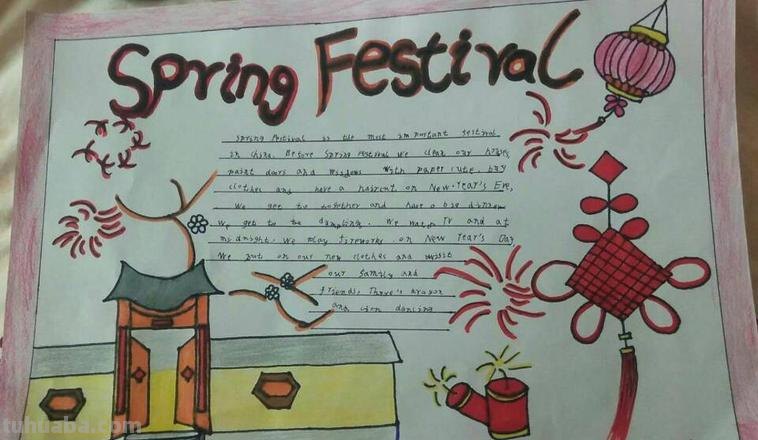 Spring Festival
Spring Festival is the most important festival
in china. Before Spring Festival we clean our houses,
paint doors and windows with paper cute. buy
clothes and have a haircut on New Year's Eve,
We get to tog
other and have a big dinner
We get to be dumpling. We watch TV and at
midnight. We play fireworks. on New Year's Day
We put on our new clothes and
our family and
friends. There's
and lion dancing
tuhuaba.com